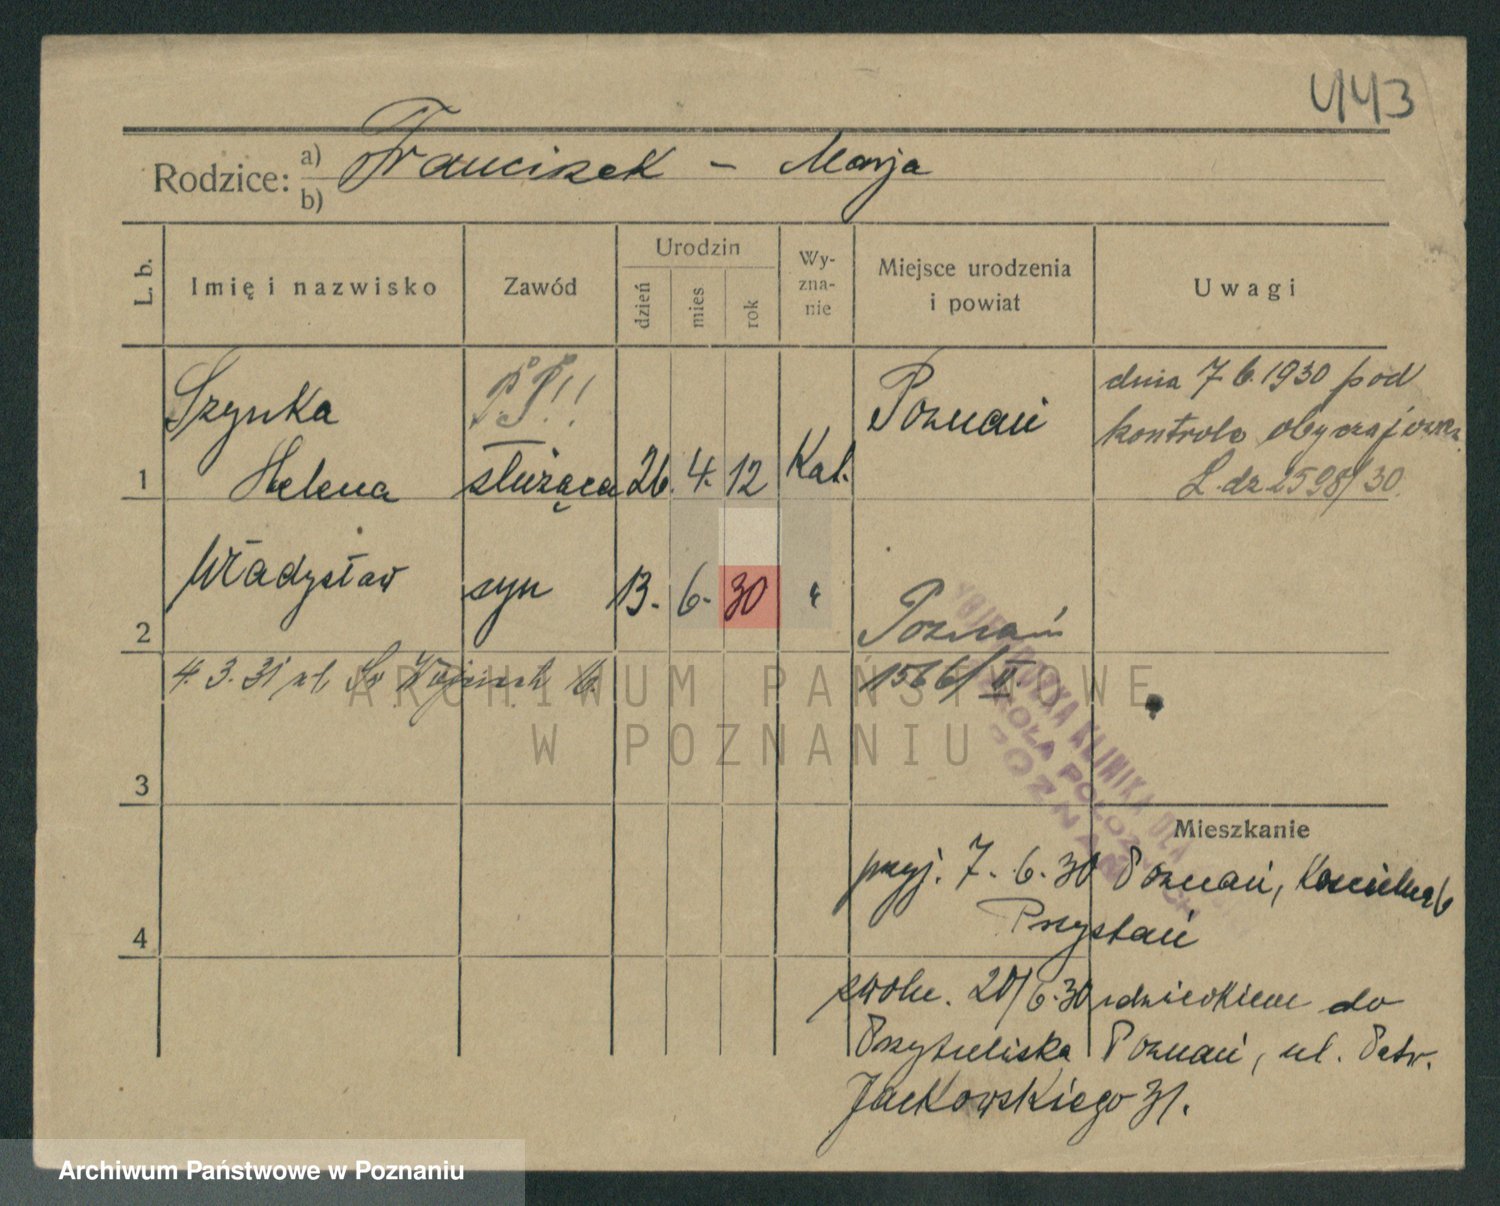 443
Rodzice: a) Franciszek - Marja
b)
L. b.
Imię i nazwisko
Zawód
Urodzin
dzień
mies
rok
Wy-
zna-
nie
Miejsce urodzenia
i powiat
Uwagi
1
Szynka
Helena
P.P!!
służąca
26. 4. 12
Kat.
Poznań
dnia 7 6. 1930 pod
kontrolo obyczajową
L. dz 2598/30.
2
Władysław
syn
13. 6. 30
"
Poznań
1566/II.
4. 3. 31 ul. Św Wojciech 6.
3
4
ARCHIWUM PAŃSTWOWE
W POZNANIU
KLINIKA DLA
SZKOŁA POŁOŻNYCH
POZNAŃ
Mieszkanie
przyj. 7. 6. 30 Poznań, Kościelna 6
Przystań
zwoln. 20/6. 30 z dzieckiem do
Przytuliska Poznań, ul. Patr.
Jackowskiego 31.
Archiwum Państwowe w Poznaniu